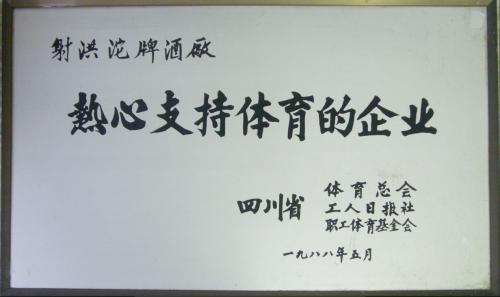 射洪沱牌酒厰
熱心支持体育的企业
四川省
体育总会
工人日报社
职工体育基金会
一九八八年五月